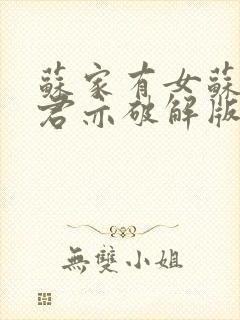 蘇家有女蘇
君亦破解版
無雙小姐